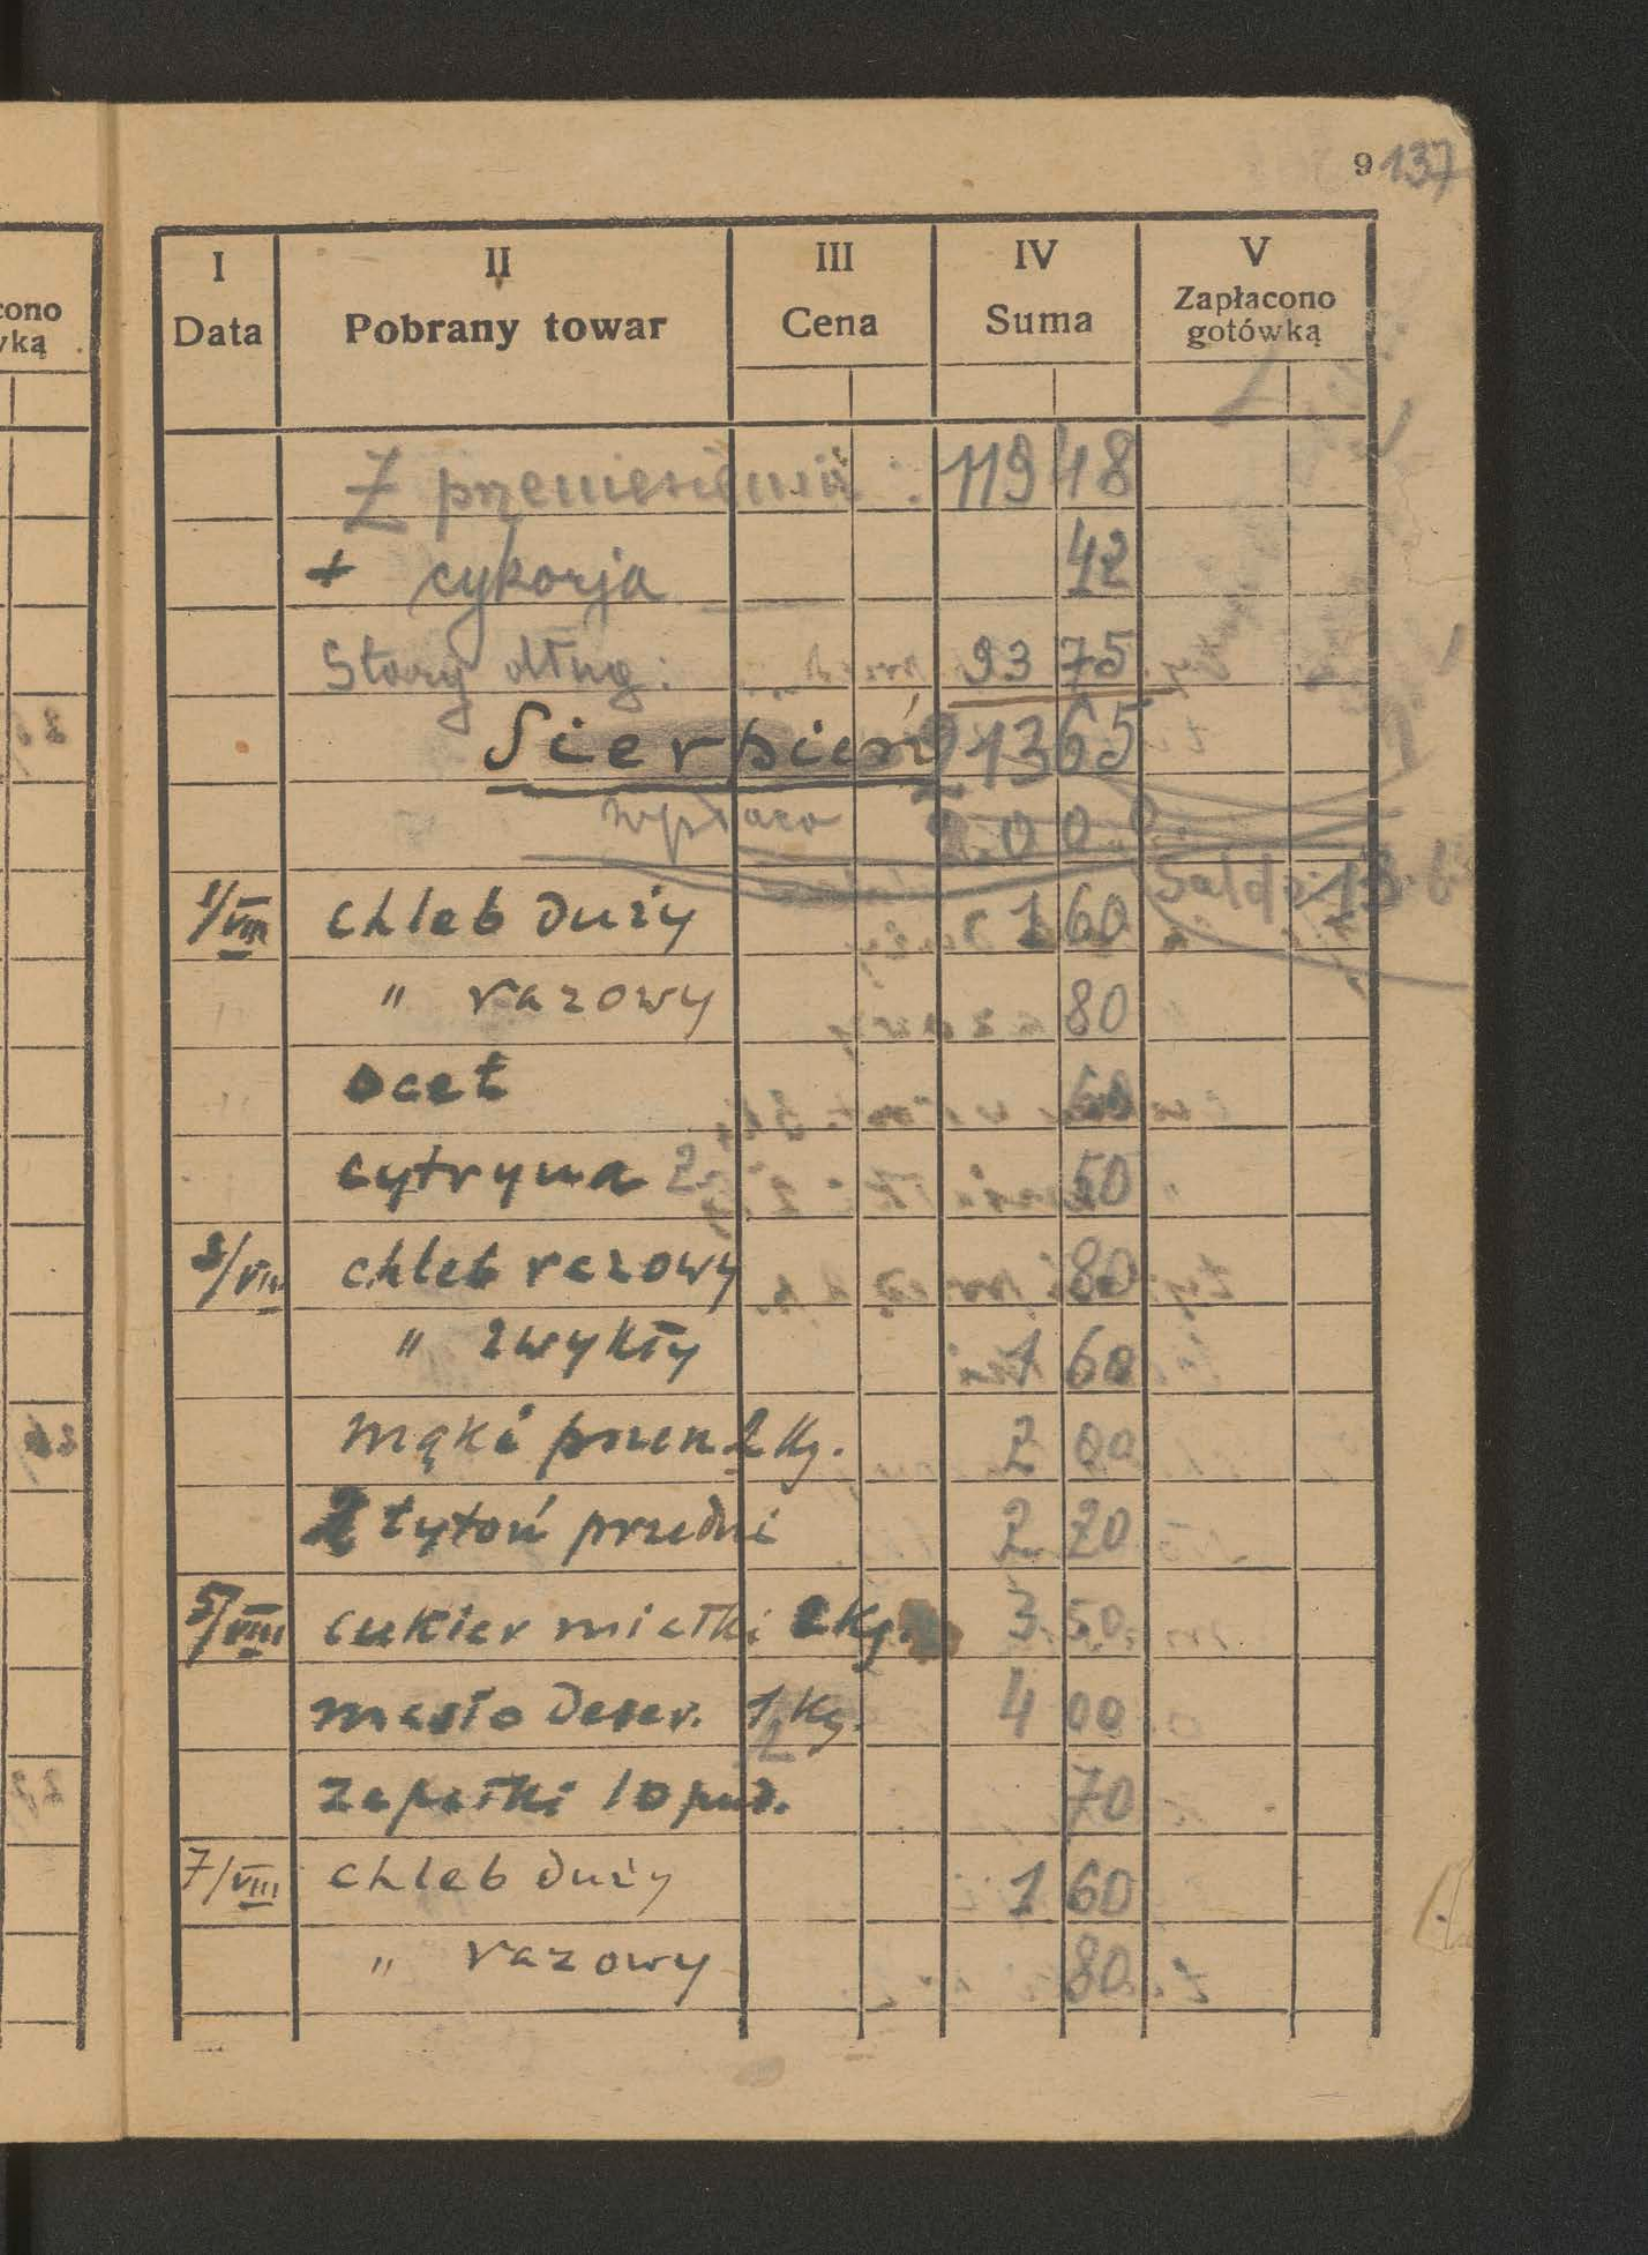 cono
wką
9 137
I II III IV V
Data Pobrany towar Cena Suma Zapłacono gotówką
Z przeniesienia : 119 48
+ cykorja 42
Stary dług : 93 75
Sierpień 213 65
wpłaca 200.0
Saldo: 13.6
1/VIII chleb duży 1 60
" razowy 80
ocet 60
cytryna 2 50
3/VIII chleb razowy 80
" zwykły 1 60
mąki pszen 2 Kg. 2 00
2 tytoń przedni 2 20
5/VIII cukier miałki 2 Kg. 3 50
masło deser. 1/2 Kg. 4 00
zapałki 10 pud. 70
7/VIII chleb duży 1 60
" razowy 80